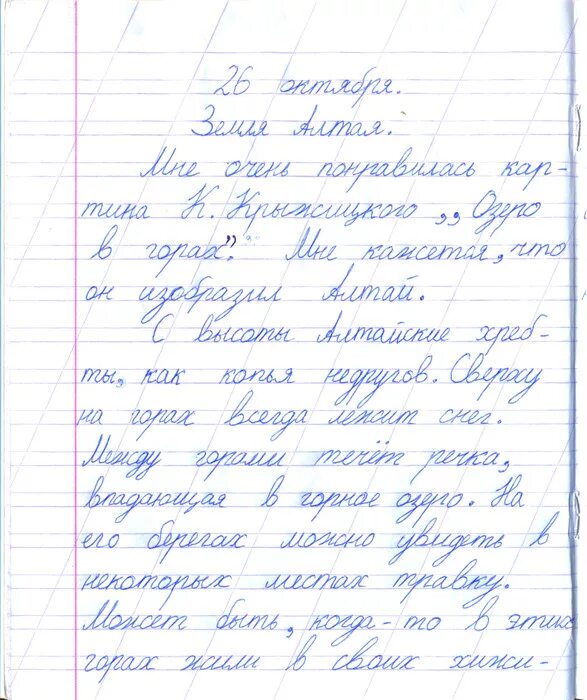 26 октября.
Земля Алтая.
Мне очень понравилась кар-
тина К. Крыжицкого „Озеро
в горах". Мне кажется, что
он изобразил Алтай.
С высоты Алтайские хреб-
ты, как копья недругов. Сверху
на горах всегда лежит снег.
Между горами течёт речка,
впадающая в горное озеро. На
его берегах можно увидеть в
некоторых местах травку.
Может быть, когда-то в этих
горах жили в своих хижи-